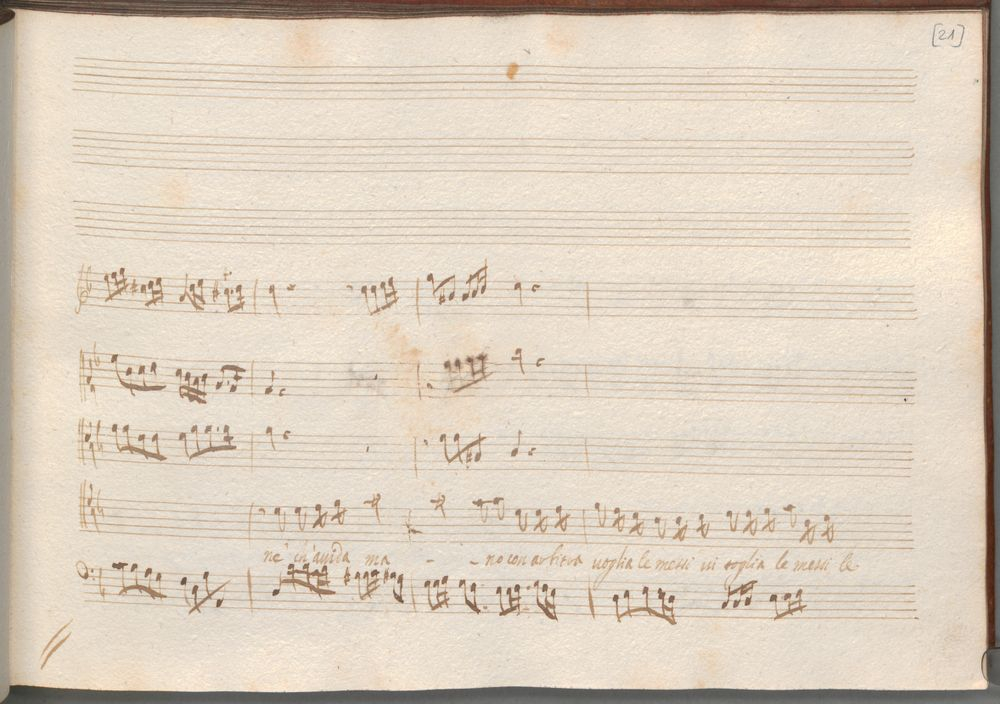 [21]
ne' ch'avida ma - - no con arbitra voglia le messi vi soglia le messi le